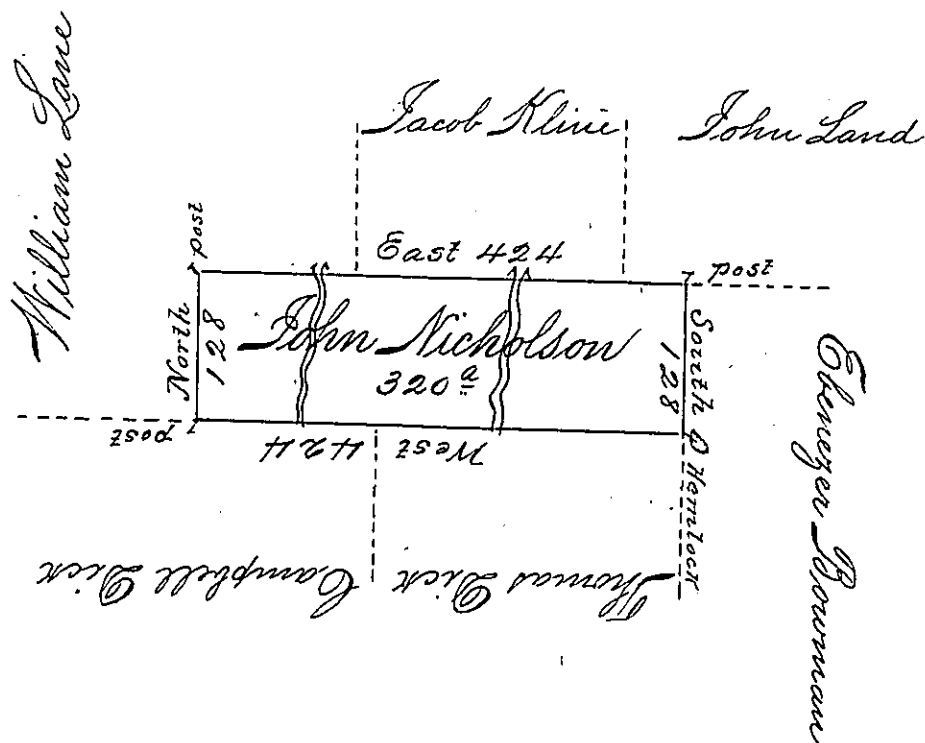 William Lane
Jacob Kline
John Land
post
East 424
post
North
128
John Nicholson
320 a
South
128
post
West 424
Hemlock
Ebenezer Bowman
Thomas Dick
Campbell Dick